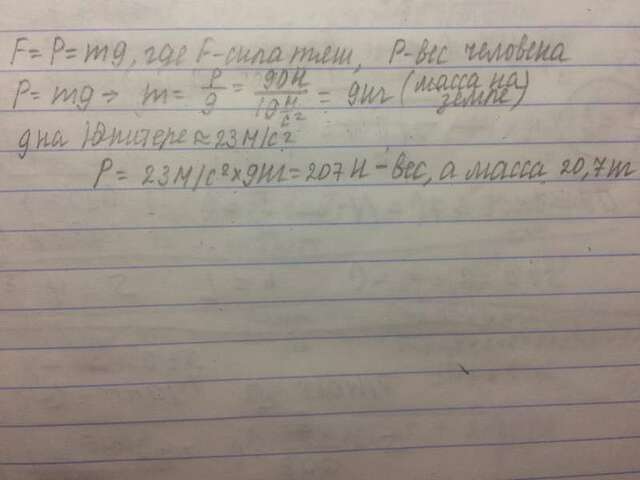 F = P = mg, где F-сила тяж, P-вес человека
P = mg → m = P/g = 90Н/10 Н/с² = 9кг (масса на земле)
g на Юпитере ≈ 23 м/с²
P = 23 м/с² × 9кг = 207 Н - вес, а масса 20,7 кг